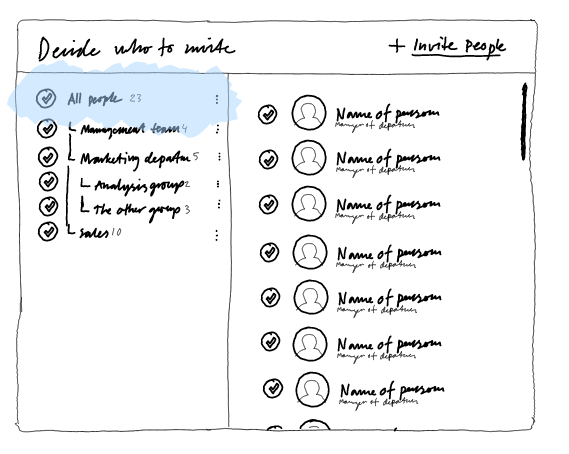 Decide who to invite
+ Invite people
All people 23
Management team 4
Marketing departm 5
Analysis group 2
The other group 3
Sales 10
Name of person
Manager of department
Name of person
Manager of department
Name of person
Manager of department
Name of person
Manager of department
Name of person
Manager of department
Name of person
Manager of department
Name of person
Manager of department